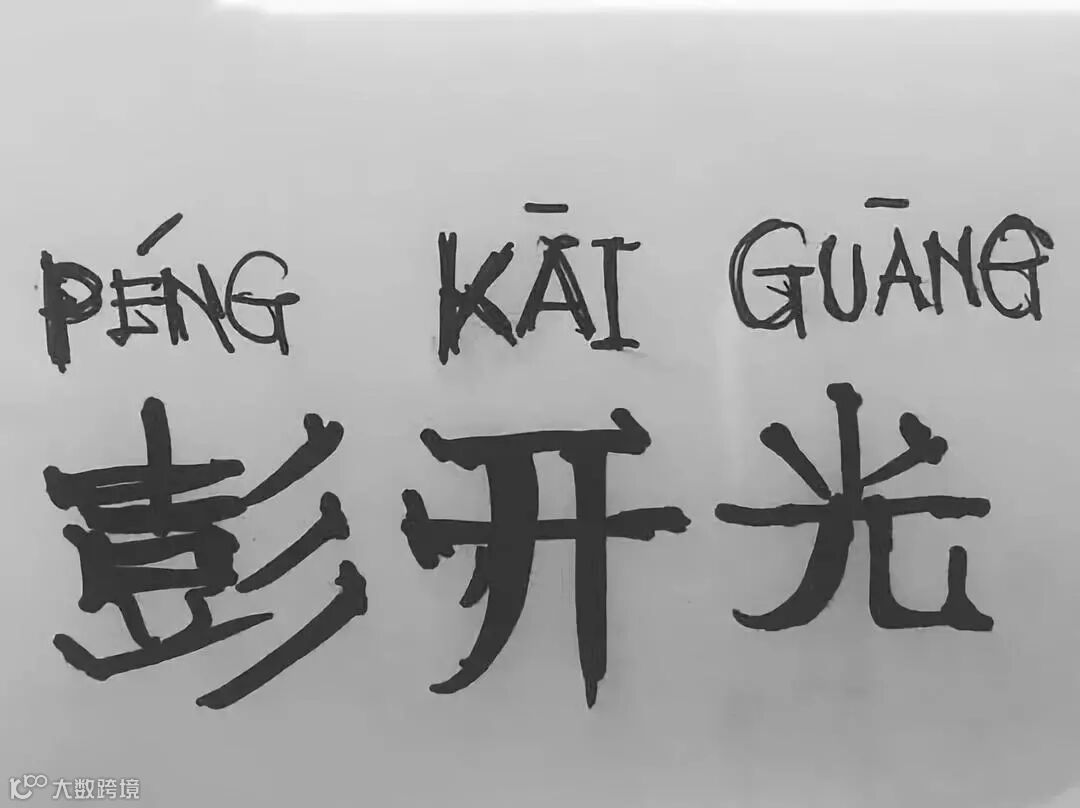 PÉNG KĀI GUĀNG
彭开光
大数跨境